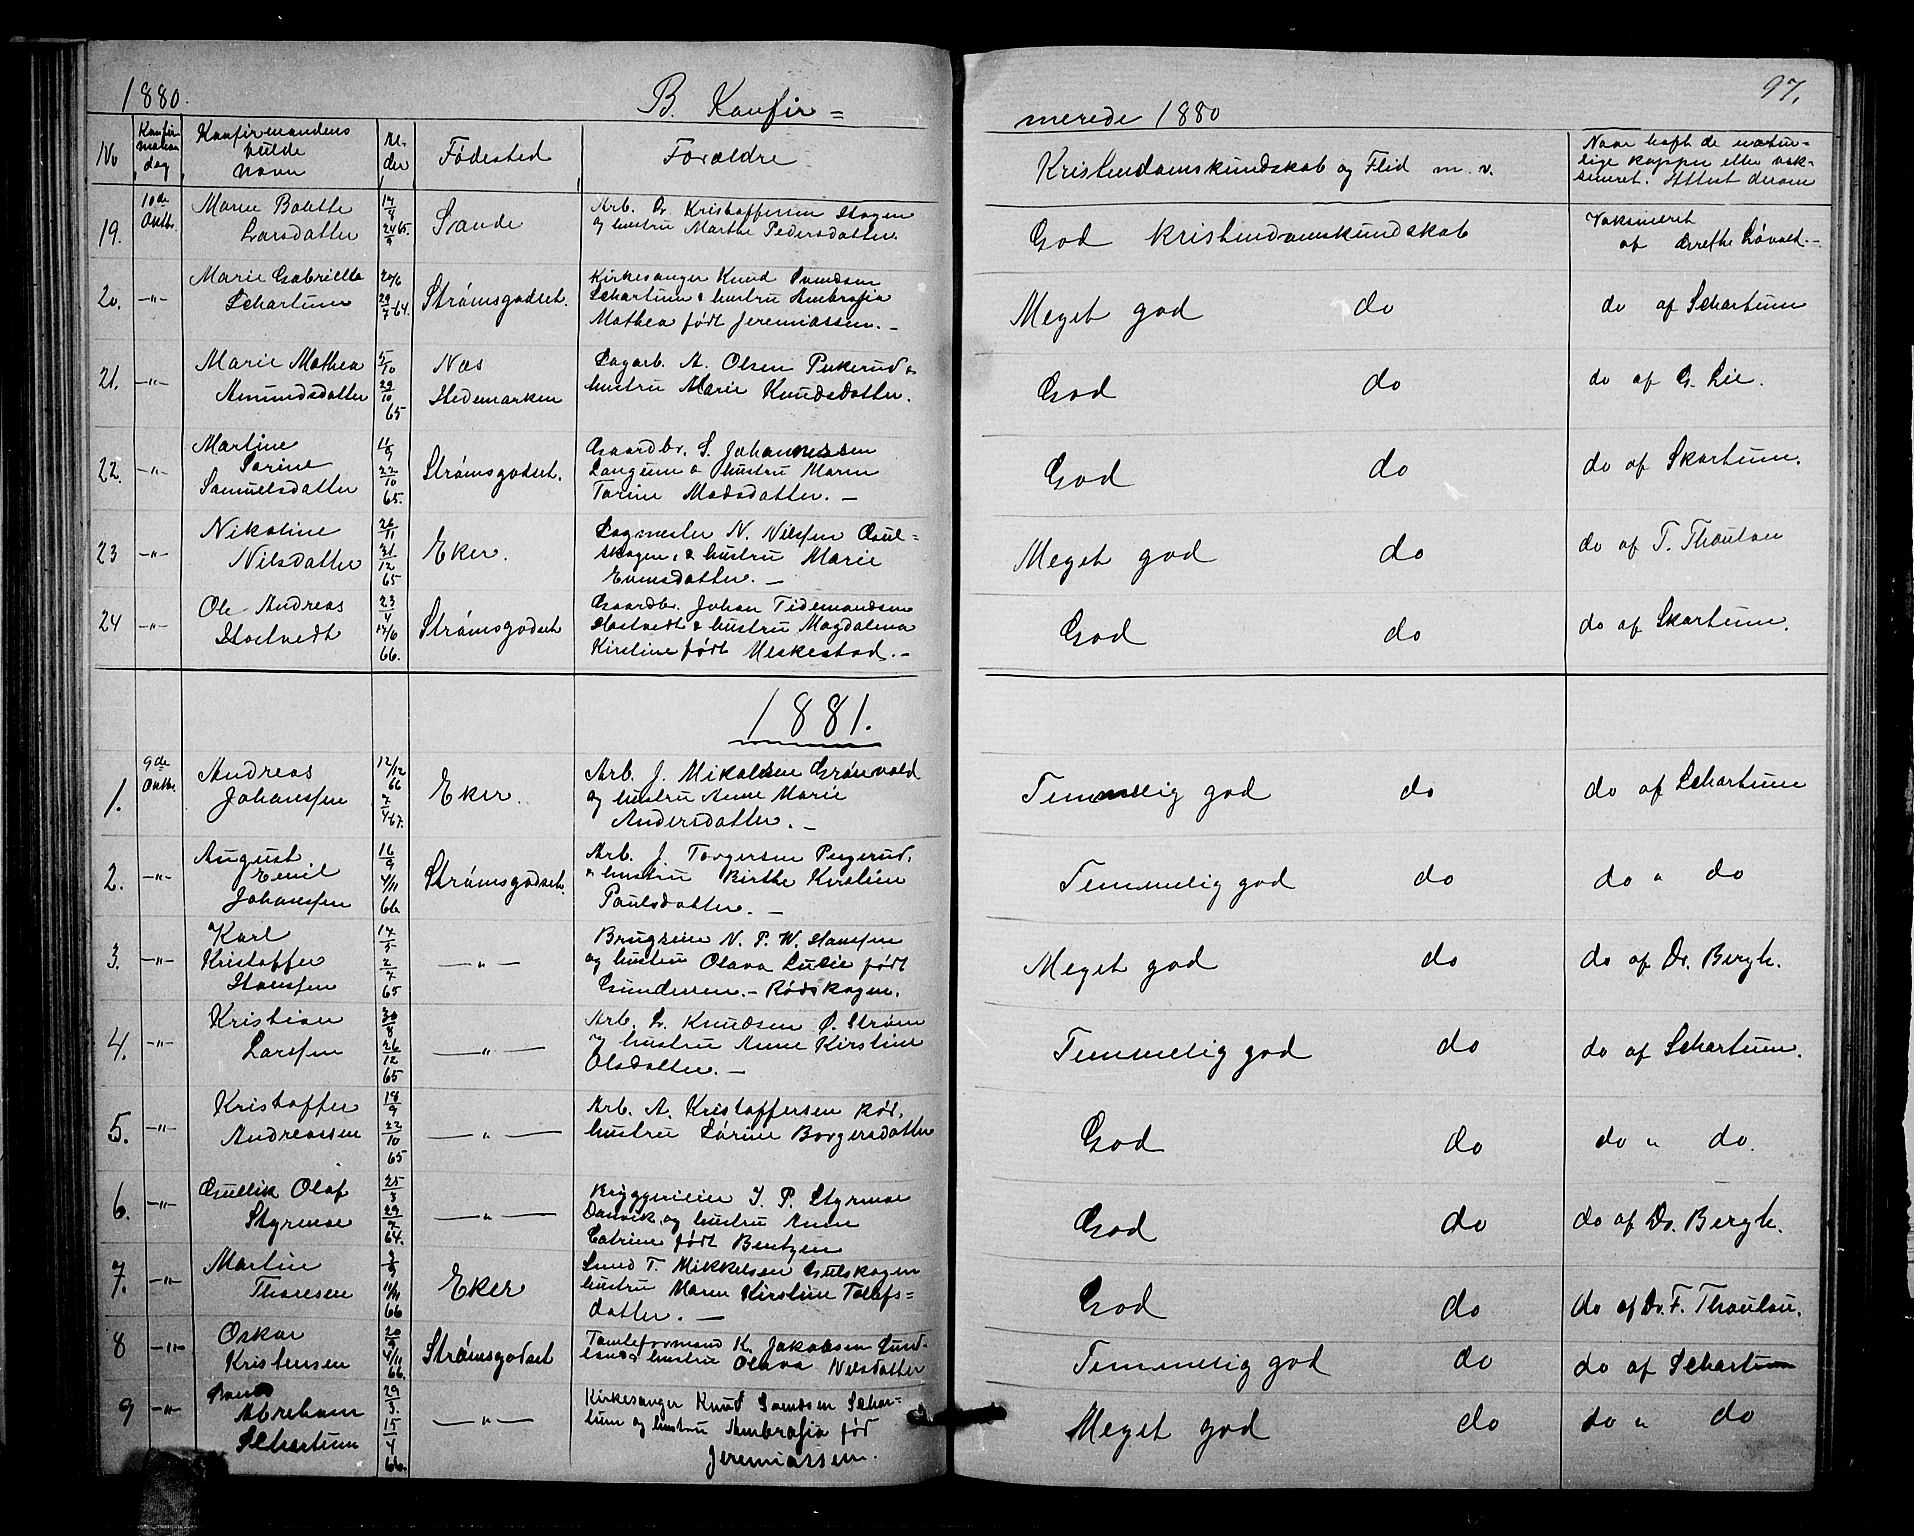 1880.
B. Konfir=
merede 1880
97.
No
Konfir-
mations
dag
Konfirmandens
fulde
Navn
Al-
der
Fødested
Forældre
Kristendomskundskab og Flid m. v.
Naar haft de natur-
lige kopper eller vak-
sineret. Attest derom
19.
10de
Oktbr.
Maren Bolette
Larsdatter
Sande
Arb. Kristoffersen
og hustru Marthe Pedersdatter.
God Kristendomskundskab
Vaksineret
af
20.
-"-
Marie Gabriella
Schartum
20/6
29/7 64.
Strømsgodset.
Kirkesanger Knud Svendsen
Schartum & hustru Ambrosia
Mathea født Jeremiassen. -
Meget god do
do af Schartum
21.
-"-
Marie Mathea
Amundsdatter
5/10
29/10
65
Næs
Hedemarken
Sagarb. A. Olsen
hustru Marie Knudsdatter.
God do
do af G. Lie.
22.
-"-
Martine
Sorine
Samuelsdatter
11/9
22/10
65.
Strømsgodset.
Gaardbr. S. Johannessen
Langum & hustru Maren
Torine Madsdatter. -
God do
do af Skartum.
23
-"-
Nikoline
Nilsdatter
26/11
31/12
65
Eker.
Sagmester N. Nilssen Guls-
skogen, & hustru Marie
Evensdatter. -
Meget god do
do af T. Thoulow
24
-"-
Ole Andreas
Hostvedt
23/4
17/6
66.
Strømsgodset
Gaardbr. Johan Tidemandsen
Hostvedt & hustru Magdalena
Kirstine født Meskestad. -
God do
do af Skartum.
1881.
1.
9de
Oktbr.
Andreas
Johanssen
12/12
66
7/4 67.
Eker.
Arb. J. Mikalsen Grønvold
og hustru Anne Marie
Andersdatter. -
Temmelig god do
do af Schartum
2.
-"-
August
Emil
Johanssen
16/9
4/11
66
Strømsgodset.
Arb. J. Torgersen Pugerud,
& hustru Birthe Kirstine
Paulsdatter. -
Temmelig god do
do " do
3.
-"-
Karl
Kristoffer
Hanssen
14/5
2/7
65
-"-
Brugseier N. P. W. Hanssen
og hustru Olava Lucie født
Gundersen. - Rødskogen.
Meget god do
do af Dr. Bergh.
4.
-"-
Kristian
Larssen
30/8
26/12
65
-"-
Arb. L. Knudsen Ø. Strøm
og hustru Anne Kirstine
Olsdatter. -
Temmelig god do
do af Schartum.
5.
-"-
Kristoffer
Andreassen
18/9
22/10
65
-"-
Arb. A. Kristoffersen Rød,
hustru Sørine Borgersdatter
God do
do " do.
6.
-"-
Gullik Olaf
Styrmoe
25/3
29/7
64.
-"-
Bryggerieier I. P. Styrmoe
Danvik, og hustru Anne
Catrine født Bentzen
God do
do af Dr. Bergh.
7.
-"-
Martin
Thoresen
11/11
66
Eker
Smed T. Mikkelsen Gulskogen
hustru Maren Kirstine Tollefs-
datter. -
God do
do af Dr. F. Thoulow.
8
-"-
Oskar
Kristensen
20/9
4/11
66.
Strømsgodset
Tomteformand K. Jakobsen Sund-
land & hustru Olava Nilsdatter
Temmelig god do
do af Schartum
9
-"-
Abraham
Schartum
29/3.
15/4
66.
-"-
Kirkesanger Knud Svendsen Schar-
tum og hustru Ambrosia fød
Jeremiassen.
Meget god do
do " do